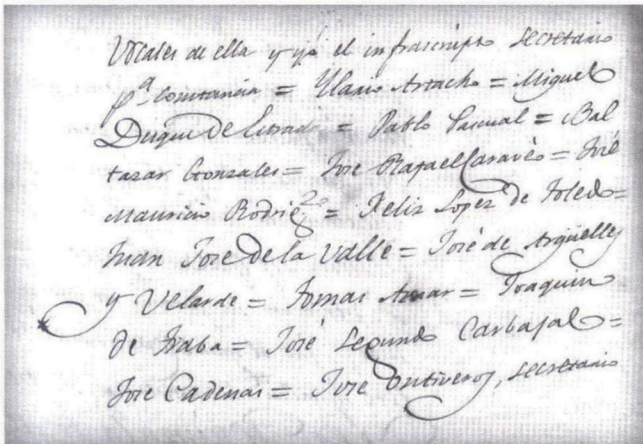 Vocales de ella y yó el infrascripto Secretario
pª. constancia = Ylario Artacho = Miguel
Duque de Estrada = Pablo Pascual = Bal
tasar Gonzales = Jose Rafael Caravès = José
Mauricio Rodrigz. = Felix Lopez de Toledo =
Juan Jose de la Valle = José de Argüelles
y Velarde = Tomas Aznar = Joaquin
de Traba = José Segundo Carbajal =
Jose Cadenas = Jose Ontiveros, secretario